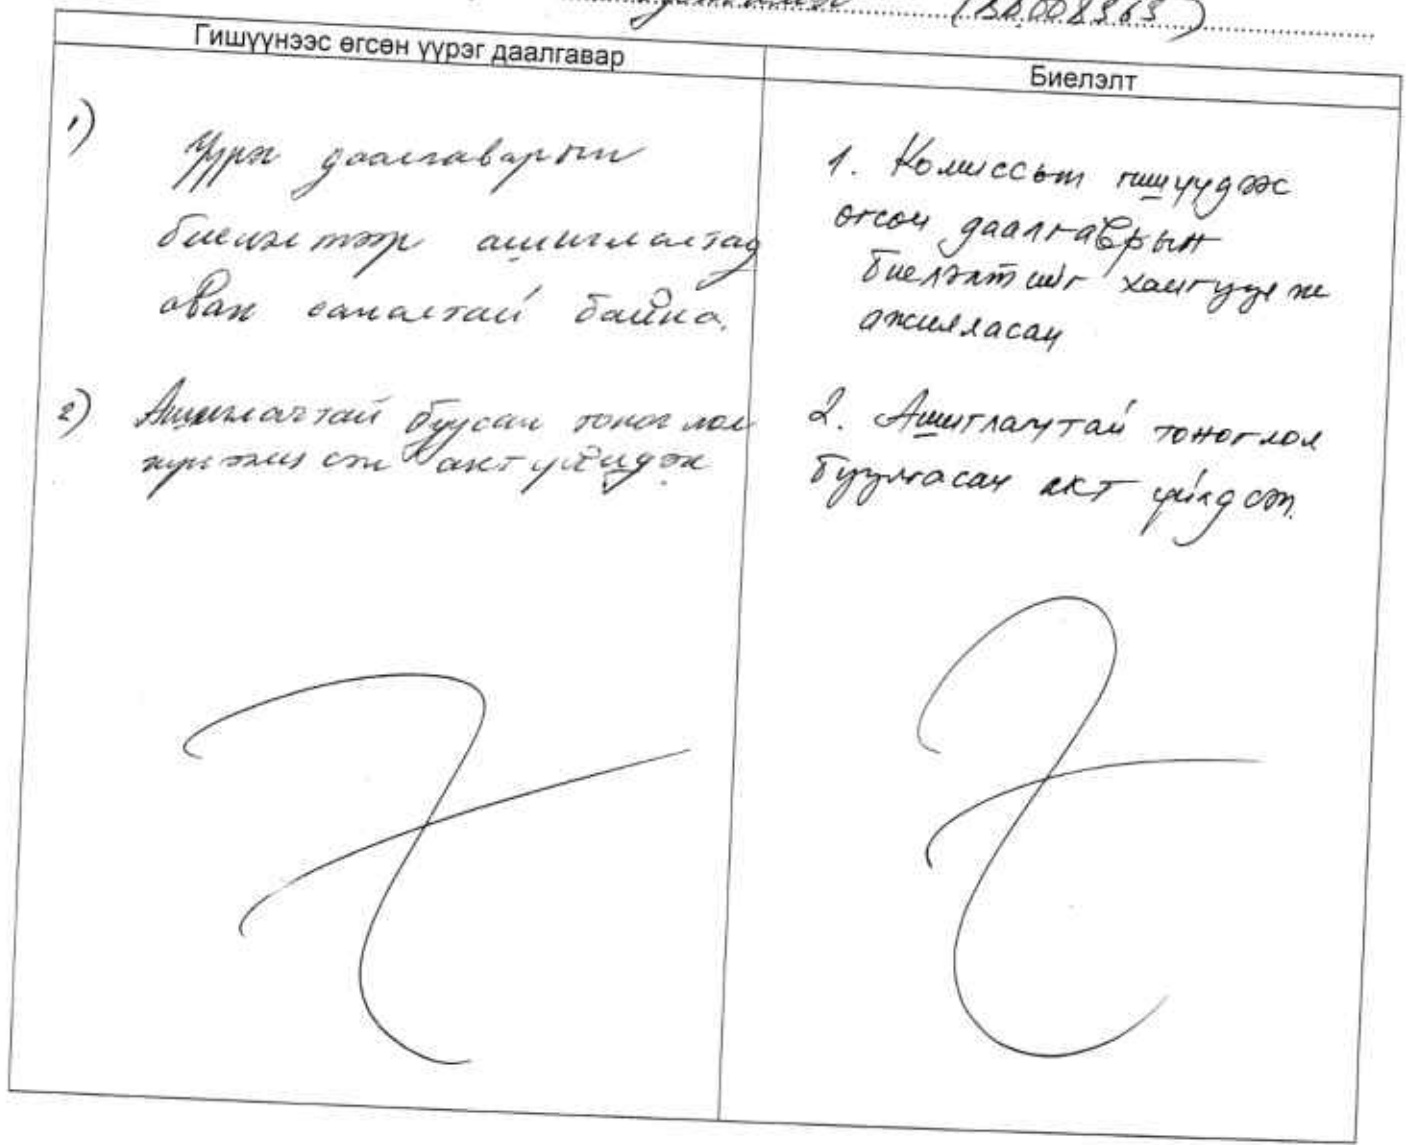 (БД.008363)
Гишүүнээс өгсөн үүрэг даалгавар
Биелэлт
1) Үүрэг даалгаварын
биелэлтээр ашиглалтад
авах саналтай байна.
2) Ашиглалтай буусан тоноглол
акт үйлдэх
1. Комиссын гишүүдээс
өгсөн даалгаврын
биелэлтийг хангуулж
ажилласан
2. Ашиглалттай тоноглол
буулгасан акт үйлдсэн.